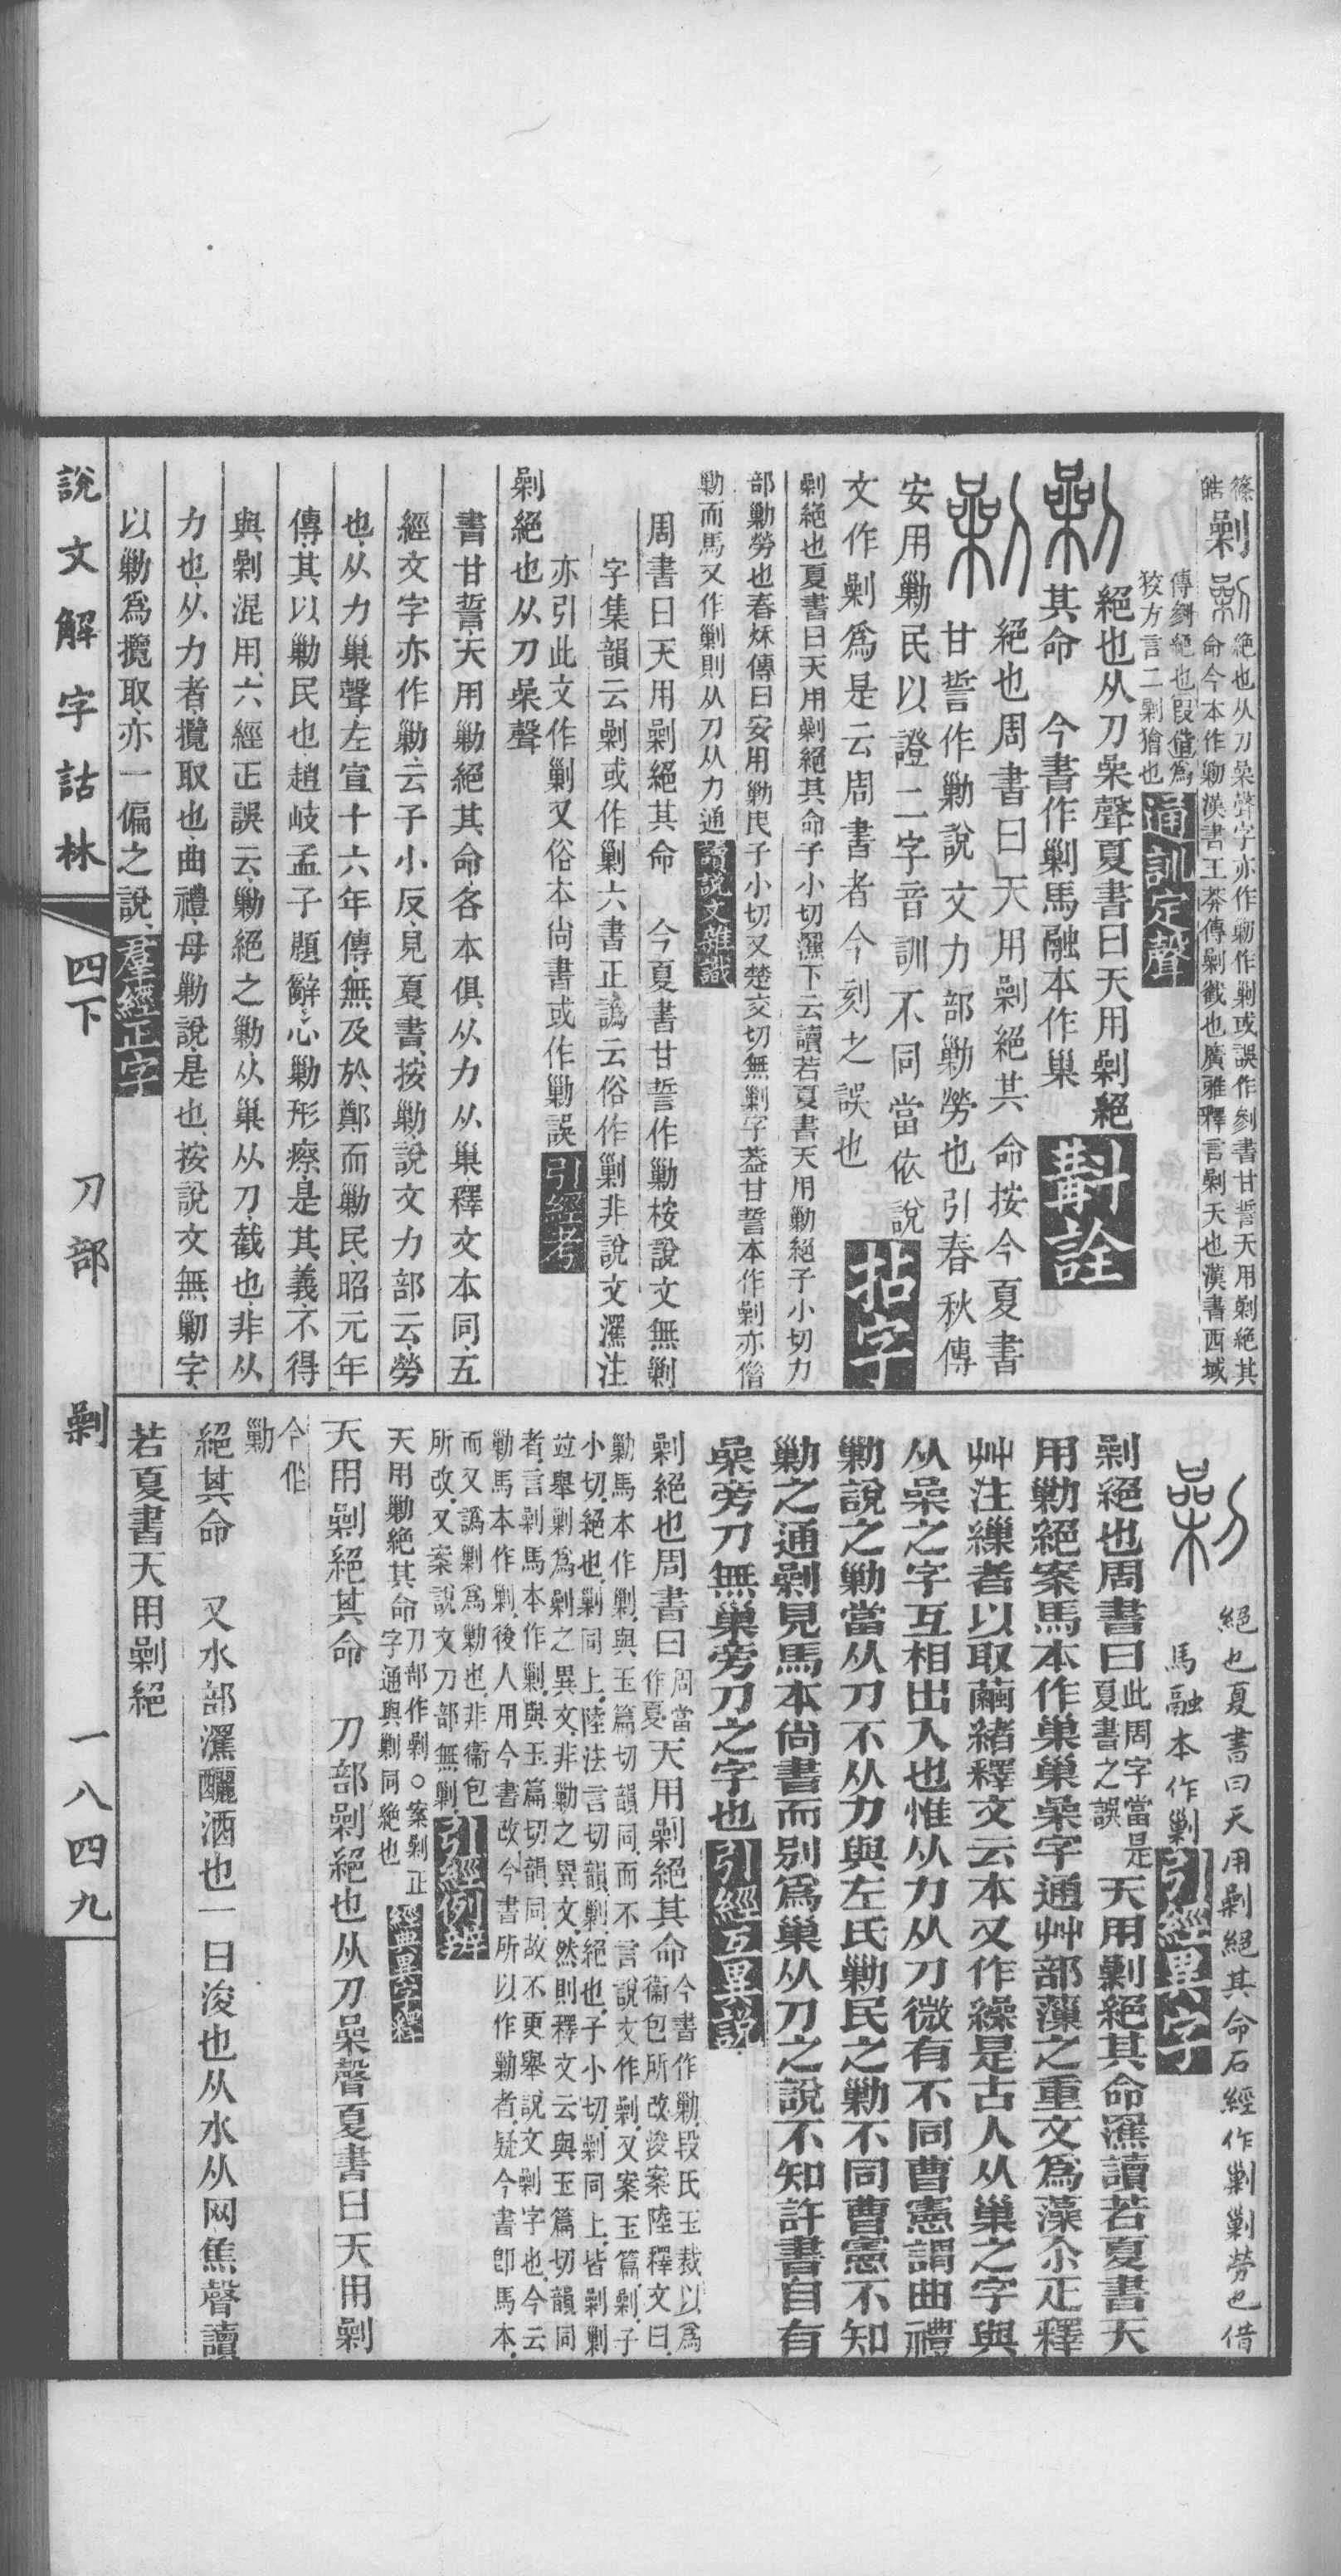 篠
皓
剿
絕也从刀喿聲字亦作勦作剿或誤作㓨書甘誓天用剿絕其
命今本作勦漢書王莽傳剿截也廣雅釋言剿夭也漢書西域
傳㓨絕也假借爲
狡方言二剿獪也
通訓定聲
絕也从刀喿聲夏書曰天用剿絕
其命　今書作剿馬融本作巢
斠詮
絕也周書曰天用剿絕其命按今夏書
甘誓作勦說文力部勦勞也引春秋傳
安用勦民以證二字音訓不同當依說
文作剿爲是云周書者今刻之誤也
拈字
剿絕也夏書曰天用剿絕其命子小切灑下云讀若夏書天用勦絕子小切力
部勦勞也春秌傳曰安用勦民子小切又楚交切無剿字葢甘誓本作剿亦偺
勦而馬又作剿則从刀从力通
讀說文雜識
周書曰天用剿絕其命　今夏書甘誓作勦桉說文無剿
字集韻云剿或作剿六書正譌云俗作剿非說文灑注
亦引此文作剿又俗本尚書或作勦誤
引經考
剿絕也从刀喿聲
書甘誓天用勦絕其命各本俱从力从巢釋文本同五
經文字亦作勦云子小反見夏書按勦說文力部云勞
也从力巢聲左宣十六年傳無及於鄭而勦民昭元年
傳其以勦民也趙岐孟子題辭心勦形瘵是其義不得
與剿混用六經正誤云勦絕之勦从巢从刀截也非从
力也从力者攬取也曲禮毋勦說是也按說文無勦字
以勦爲攬取亦一偏之說
羣經正字
絕也夏書曰天用剿絕其命石經作剿剿勞也借
馬融本作剿
引經異字
剿絕也周書曰
此周字當是
夏書之誤
天用剿絕其命灑讀若夏書天
用勦絕案馬本作巢巢喿字通艸部薻之重文爲藻尒疋釋
艸注繅者以取繭緒釋文云本又作繰是古人从巢之字與
从喿之字互相出入也惟从力从刀微有不同曹憲謂曲禮
勦說之勦當从刀不从力與左氏勦民之勦不同曹憲不知
勦之通剿見馬本尚書而別爲巢从刀之說不知許書自有
喿旁刀無巢旁刀之字也
引經互異說
剿絕也周書曰
周當
作夏
天用剿絕其命
今書作勦段氏玉裁以爲
衞包所改浚案陸釋文曰
勦馬本作剿與玉篇切韻同而不言說文作剿又案玉篇剿子
小切絕也剿同上陸法言切韻剿絕也子小切剿同上皆剿剿
竝舉剿爲剿之異文非勦之異文然則釋文云與玉篇切韻同
者言剿馬本作剿與玉篇切韻同故不更舉說文剿字也今云
勦馬本作剿後人用今書改今書所以作勦者疑今書卽馬本
而又譌剿爲勦也非衞包
所改又案說文刀部無剿
引經例辨
天用勦絕其命
刀部作剿○案剿正
字通與剿同絶也
經典異字釋
天用剿絕其命　刀部剿絕也从刀喿聲夏書曰天用剿
今俗
勦
絕其命　又水部灑釃酒也一曰浚也从水从网焦聲讀
若夏書天用剿絕
說文解字詁林
四下
刀部
剿
一八四九